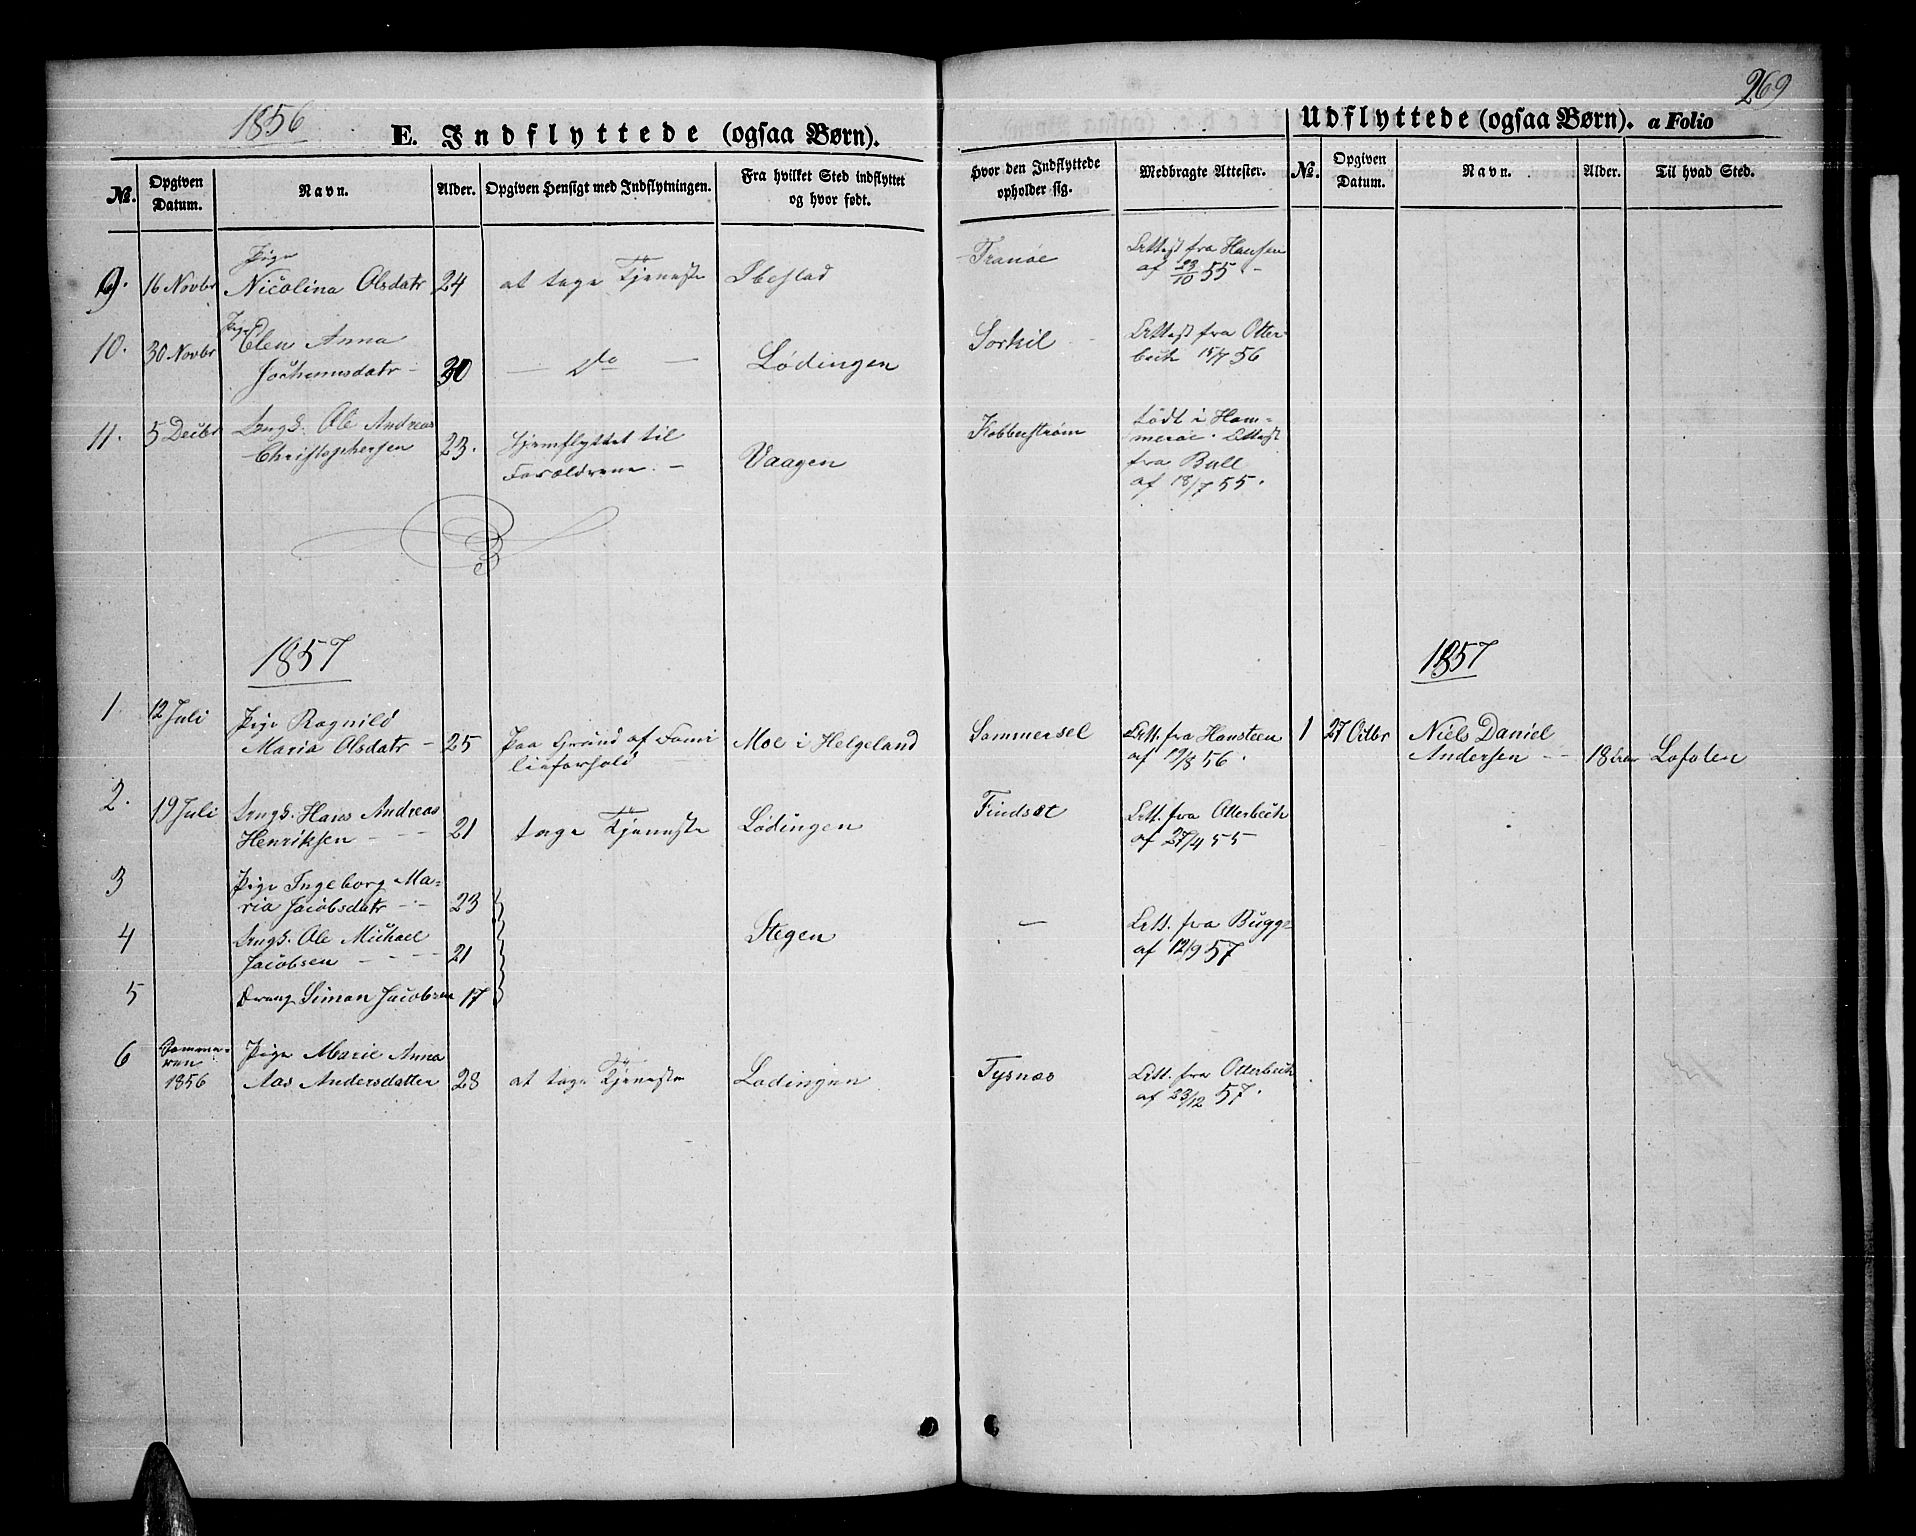 269
1856
E. Indflyttede (ogsaa Børn).
Udflyttede (ogsaa Børn). a Folio
No. Opgiven Datum. Navn. Alder. Opgiven Hensigt med Indflytningen. Fra hvilket Sted indflyttet og hvor født. Hvor den Indflyttede opholder sig. Medbragte Attester. No. Opgiven Datum. Navn. Alder. Til hvad Sted.
Pige
9. 16 Novbr Nicolina Olsdatr 24 at tage Tjeneste Ibestad Tranöe Attest fra Hansen
af 23/10 55 -
10. 30 Novbr Pige Elen Anna
Jochumsdatr - 30 - Do - Lödingen Sorkil - Attest fra Otter-
bech 15/7 56
11. 5 Decbr Ungk. Ole Andreas
Christophersen 23. Hjemflyttet til
Forældrene. - Vaagen Kobberström födt i Ham-
meröe. Attest
fra Bull
af 18/7 55.
1857
1857
1 12 Juli Pige Ragnild
Maria Olsdatr - 25 paa Grund af Fami
lieforhold Moe i Helgeland Sommersel Att. fra Hansteen
af 19/8 56.
1 27 Octbr Niels Daniel
Andersen - - 18 Lofoten
2. 19 Juli Ungk. Hans Andreas
Henriksen - - - 21 tage Tjeneste Lödingen Findsæt Att. fra Otterbech
af 27/4 55
3 Pige Ingeborg Ma-
ria Jacobsdatr - - 23
4 Ungk. Ole Michael
Jacobsen - - - - 21 Stegen - Att. fra Bugge
af 12/9 57
5 Dreng Simon Jacobsen 17
6 Somme-
ren
1856 Pige Marie Anna
Aas Andersdatter 28 at tage Tjeneste Lödingen Tysnæs Att. fra Otterbech
af 23/12 57.